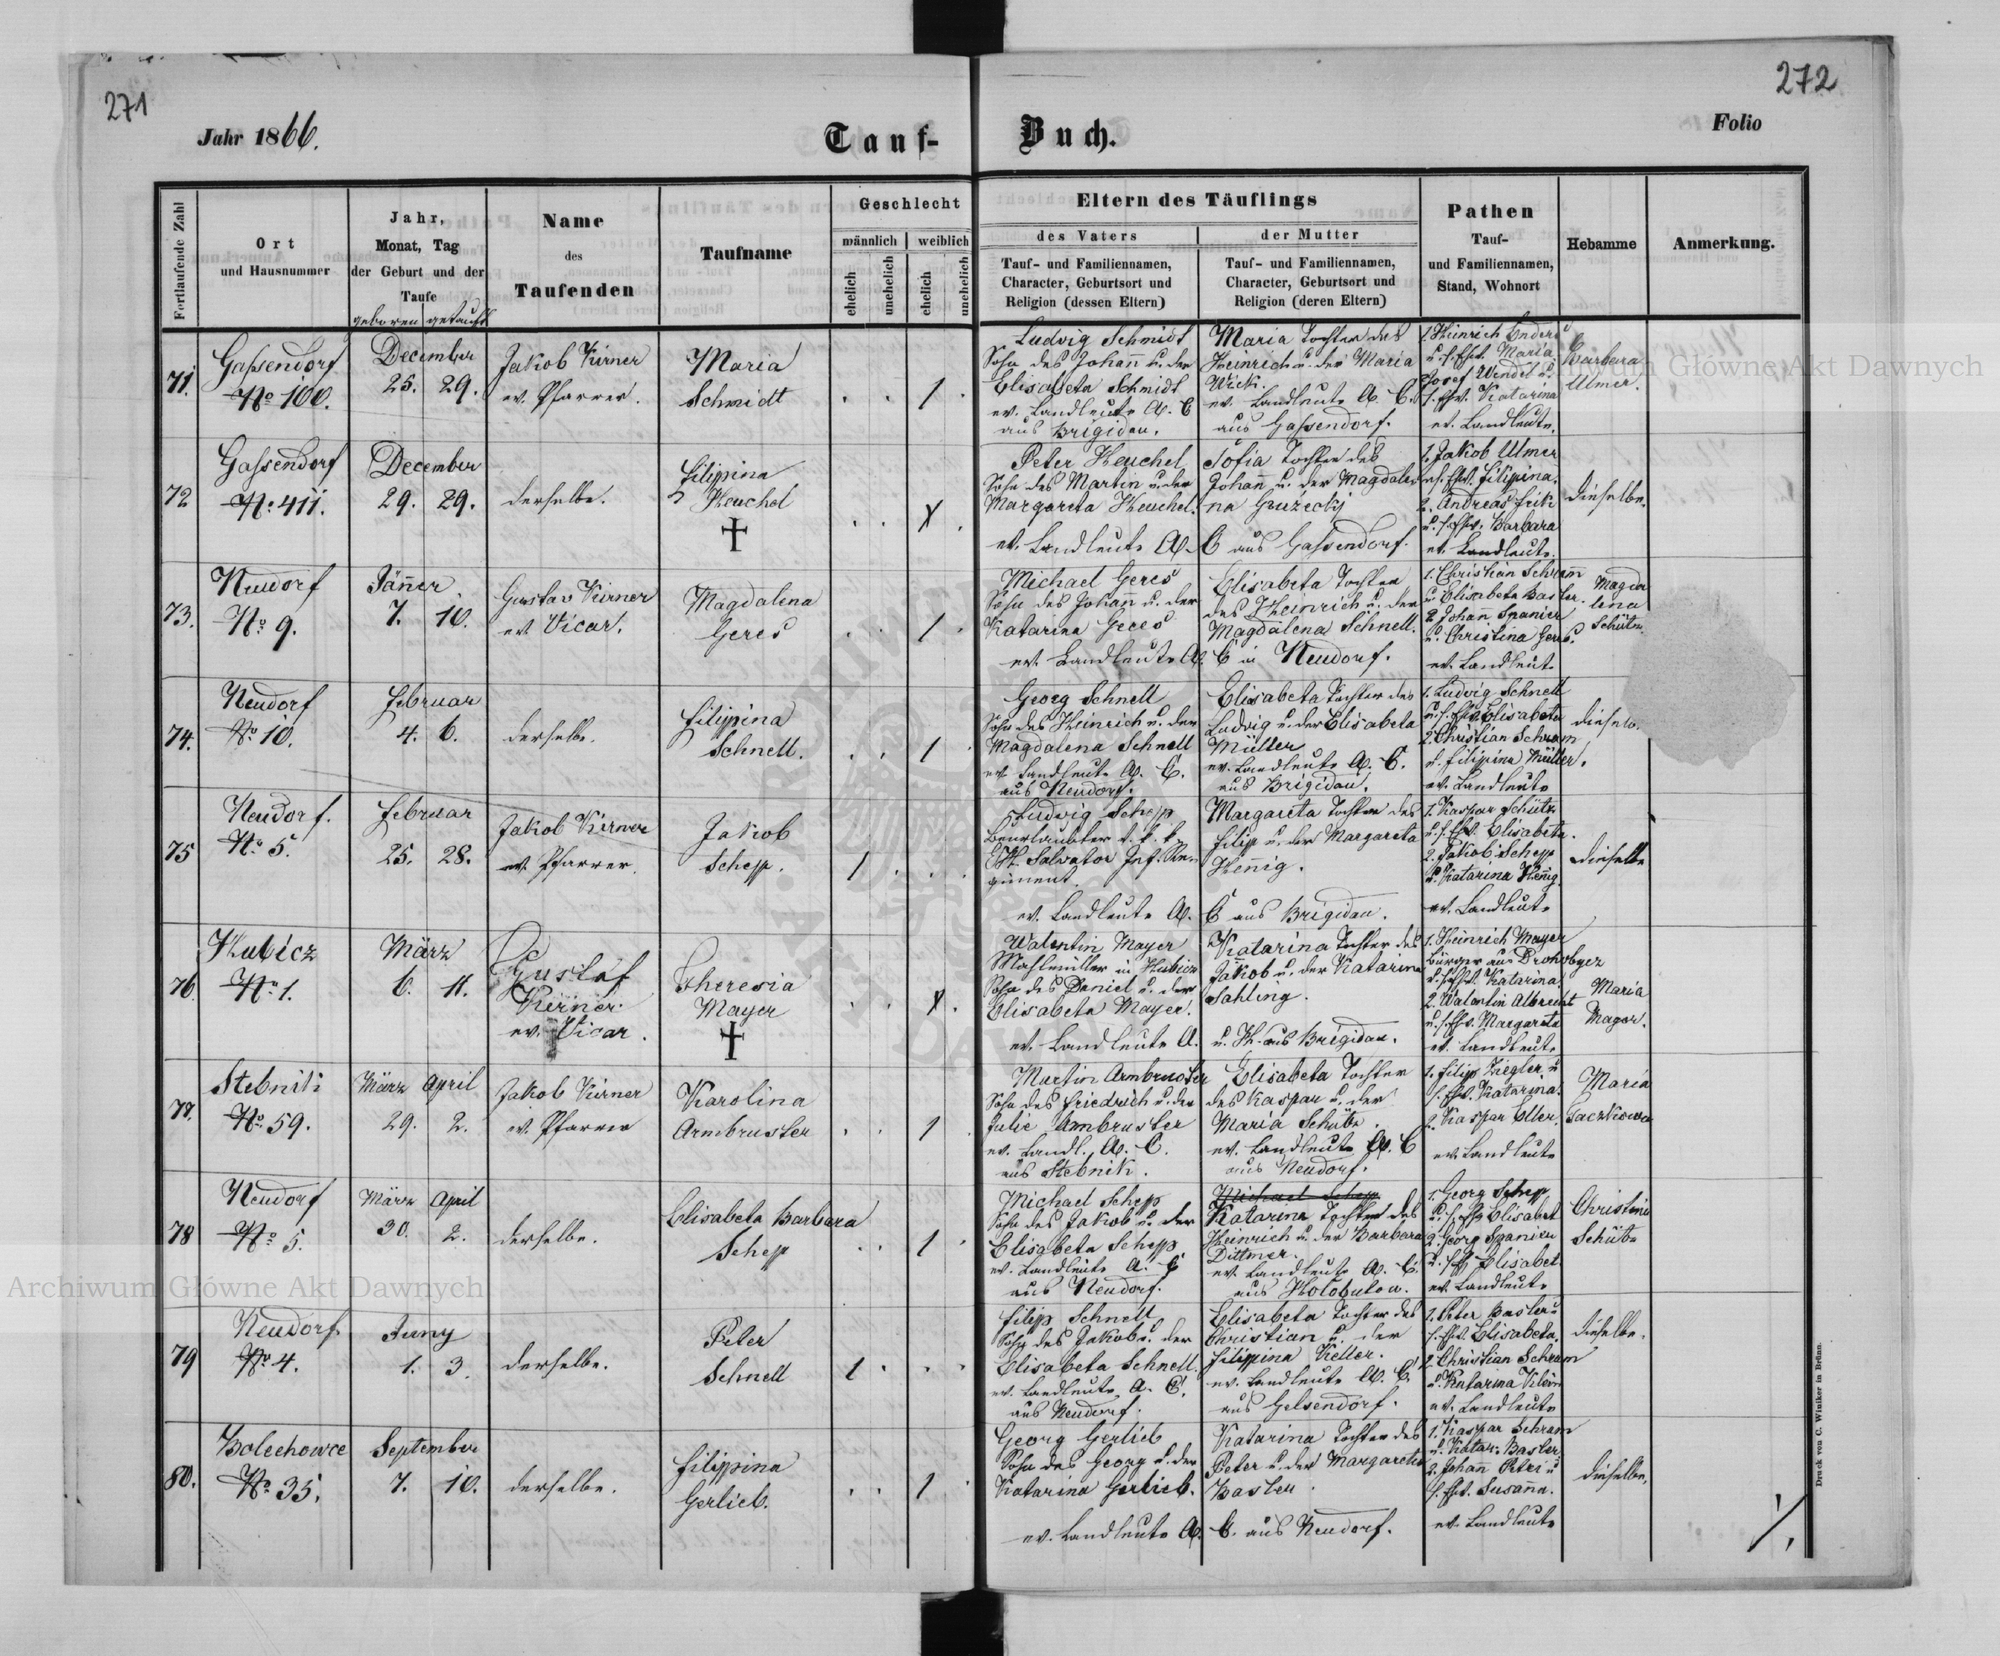 271
272
Jahr 1866.
Tauf-
Buch.
Folio
Fortlaufende Zahl
Ort
und Hausnummer
Jahr,
Monat, Tag
der Geburt und der
Taufe
geboren getauft
Name
des
Taufenden
Taufname
Geschlecht
männlich
weiblich
ehelich
unehelich
ehelich
unehelich
Eltern des Täuflings
des Vaters
Tauf- und Familiennamen,
Character, Geburtsort und
Religion (dessen Eltern)
der Mutter
Tauf- und Familiennamen,
Character, Geburtsort und
Religion (deren Eltern)
Pathen
Tauf-
und Familiennamen,
Stand, Wohnort
Hebamme
Anmerkung.
71.
Gassendorf
No 100.
December
25. 29.
Jakob Kirner
ev. Pfarrer.
Maria
Schmidt
1
Ludwig Schmidt
Sohn des Johann u. der
Elisabeta Schmidt
ev. Landleute A. C
aus Brigidau.
Maria Tochter des
Heinrich u. der Maria
Wick.
ev. Landleute A. C.
aus Gassendorf.
1. Heinrich Enders
u. s. Ehw. Maria
Josef Wendel u.
s. Ehw. Katarina
ev. Landleute.
Barbara
Ulmer.
72
Gassendorf
No. 411.
December
29. 29.
derselbe.
Filipina
Heuchel
Peter Heuchel
Sohn des Martin u. der
Margareta Heuchel.
ev. Landleute A.
Sofia Tochter des
Johann u. der Magdale
na Gruzecki
C aus Gassendorf.
1. Jakob Ulmer
u. s. Ehw. Filipina.
2. Andreas Frik
u. s. Ehw. Barbara
ev. Landleute.
dieselbe.
73.
Neudorf
No. 9.
Jänner
7. 10.
Gustav Kirner
ev. Vicar.
Magdalena
Geres
1
Michael Geres
Sohn des Johann u. der
Katarina Geres
ev. Landleute A.
Elisabeta Tochter
des Heinrich u. der
Magdalena Schnell.
C in Neudorf.
1. Christian Schramm
u. Elisabeta Basler.
2. Johann Spanier
u. Christina Geres.
ev. Landleute
Magda
lena
74.
Neudorf
No. 10.
Februar
4. 6.
derselbe.
Filippina
Schnell.
1
Georg Schnell
Sohn des Heinrich u. der
Magdalena Schnell
ev. Landleute A. C.
aus Neudorf.
Elisabeta Tochter des
Ludwig u. der Elisabeta
Müller
ev. Landleute A. C.
aus Brigidau.
1. Ludwig Schnell
u. s. Ehw. Elisabeta
2. Christian Schram
u. Filipina Müller.
ev. Landleute
75
Neudorf.
No. 5.
Februar
25. 28.
Jakob Kirner
ev. Pfarrer.
Jakob
Schepp.
1
Ludwig Schepp
Beurlaubter d. k. k.
E.H. Salvator Inf. Re-
giment.
ev. Landleute A.
Margareta Tochter des
Filip u. der Margareta
Hennig.
C aus Brigidau.
1. Kaspar Schütz
u. s. Ehw. Elisabeta.
2. Jakob Schepp
u. Katarina Hennig.
ev. Landleute
dieselbe
76
Hubicz
No. 1.
März
6. 11.
Gustaf
Kirner
ev. Vicar.
Theresia
Mayer
Walentin Mayer
Mahlmüller in Hubicz
Sohn des Daniel u. der
Elisabeta Mayer.
ev. Landleute A.
Katarina Tochter des
Jakob u. der Katarina
Sahling.
u. H. aus Brigidau.
1. Heinrich Mayer
Bürger aus Drohobycz
u. s. Ehw. Katarina.
2. Walentin Albrecht
u. s. Ehw. Margareta
ev. Landleute
Maria
Mager.
77.
Stebnik
No. 59.
März April
29. 2.
Jakob Kirner
ev. Pfarrer
Karolina
Armbruster
1
Martin Armbruster
Sohn des Friedrich u. der
Julie Ambruster
ev. Landl. A. C.
aus Stebnik.
Elisabeta Tochter
des Kaspar u. der
Maria Schütz.
ev. Landleute A. C
aus Neudorf.
1. Filip Ziegler u
s. Ehw. Katarina.
2. Kaspar Eller.
ev. Landleute
Maria
78
Neudorf
No. 5.
März April
30. 2.
derselbe.
Elisabeta Barbara
Schepp
1
Michael Schepp
Sohn des Jakob u. der
Elisabeta Schepp
ev. Landleute A. C
aus Neudorf.
Michael Schepp
Katarina Tochter des
Heinrich u. der Barbara
Dittmer.
ev. Landleute A. C.
aus Holobutow.
1. Georg Schepp
u. s. Ehw Elisabet
2. Georg Spanier
u. s. Ehw Elisabet.
ev. Landleute
Christine
Schütz
79
Neudorf
No. 4.
Juny
1. 3.
derselbe.
Peter
Schnell
1
Filip Schnell
Sohn des Jakob u. der
Elisabeta Schnell.
ev. Landleute A. C.
aus Neudorf.
Elisabeta Tochter des
Christian u. der
Filippina Keller.
ev. Landleute A. C.
aus Gelsendorf.
1. Peter Basler u
s. Ehw. Elisabeta.
2. Christian Schram
u. Katarina
ev. Landleute
dieselbe.
80.
Bolechowce
No. 35.
September
7. 10.
derselbe.
Filippina
Gerlieb.
1
Georg Gerlieb
Sohn des Georg u. der
Katarina Gerlieb.
ev. Landleute A.
Katarina Tochter des
Peter u. der Margareta
Basler.
C. aus Neudorf.
1. Kaspar Schram
u. Katar. Basler
2. Johann Petri u
s. Ehw. Susanna.
ev. Landleute
dieselbe.
Druck von C. Winiker in Brünn.
Archiwum Główne Akt Dawnych
Archiwum Główne Akt Dawnych